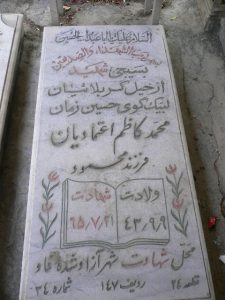 السلام علیک یا اباعبدالله الحسین
بسیجی شهید
از خیل کربلائیان
لبیک گوی حسین زمان
محمد کاظم اعتمادیان
فرزند محمود
ولادت شهادت
۴۳،۹،۹ ۶۵/۷/۲۱
محل شهادت شهر آزاد شده فاو
قطعه ۲۴ ردیف ۱۴۷ شماره ۳۴